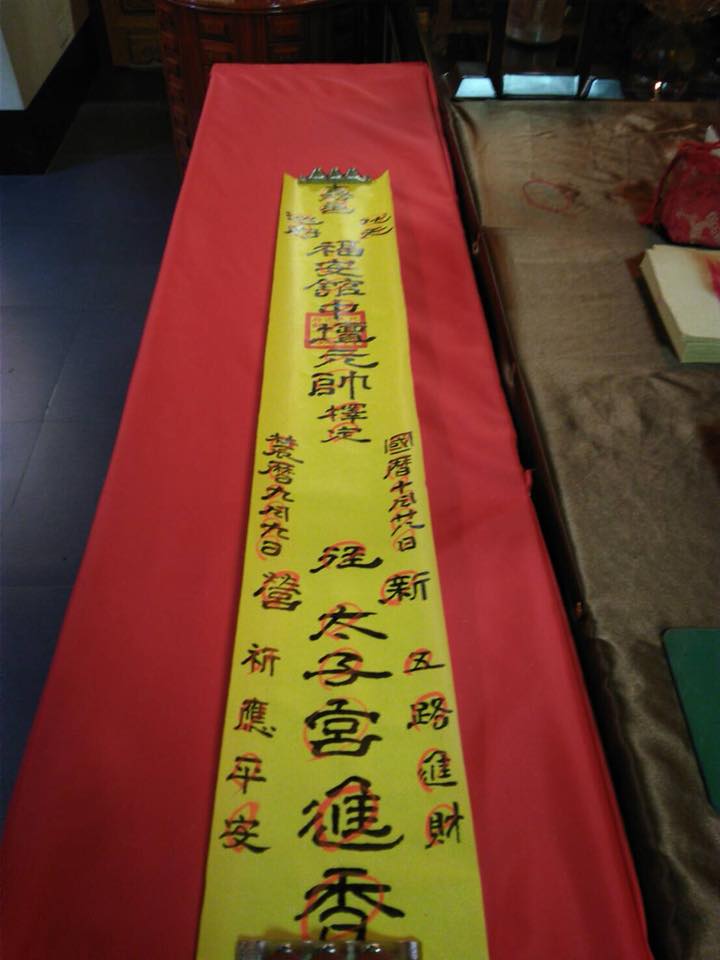 福安館中壇元帥擇定
國曆十月廿八日
農曆九月九日
新
營
往太子宮進香
五路進財
祈應平安